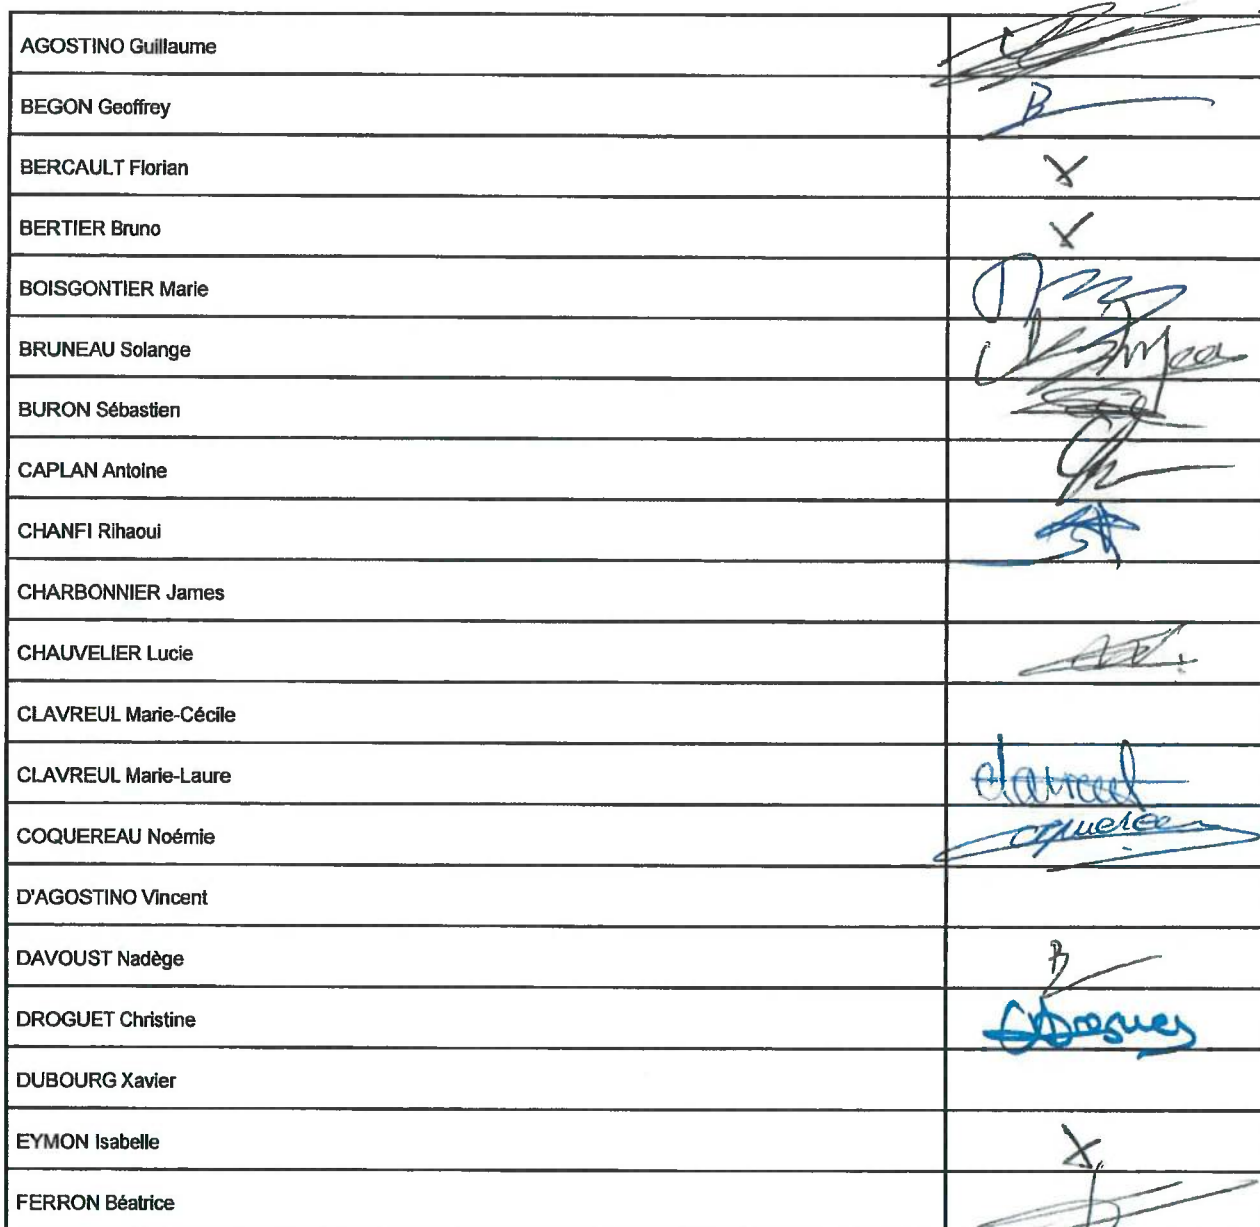 AGOSTINO Guillaume
BEGON Geoffrey
B
BERCAULT Florian
X
BERTIER Bruno
X
BOISGONTIER Marie
BRUNEAU Solange
BURON Sébastien
CAPLAN Antoine
CHANFI Rihaoui
CHARBONNIER James
CHAUVELIER Lucie
CLAVREUL Marie-Cécile
CLAVREUL Marie-Laure
clavreul
COQUEREAU Noémie
D'AGOSTINO Vincent
DAVOUST Nadège
B
DROGUET Christine
DUBOURG Xavier
EYMON Isabelle
X
FERRON Béatrice